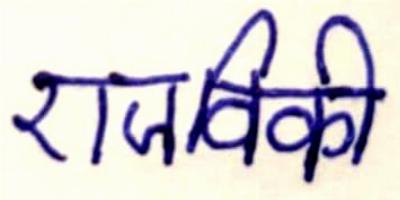 राजविकी